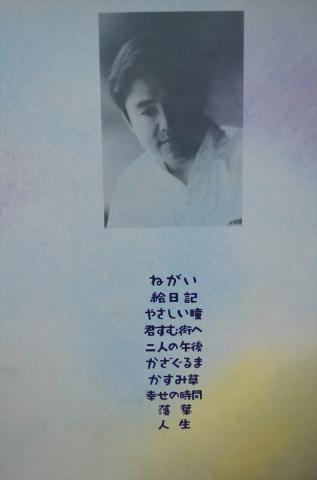 ねがい
絵日記
やさしい瞳
君すむ街へ
二人の午後
かざぐるま
かすみ草
幸せの時間
落葉
人生